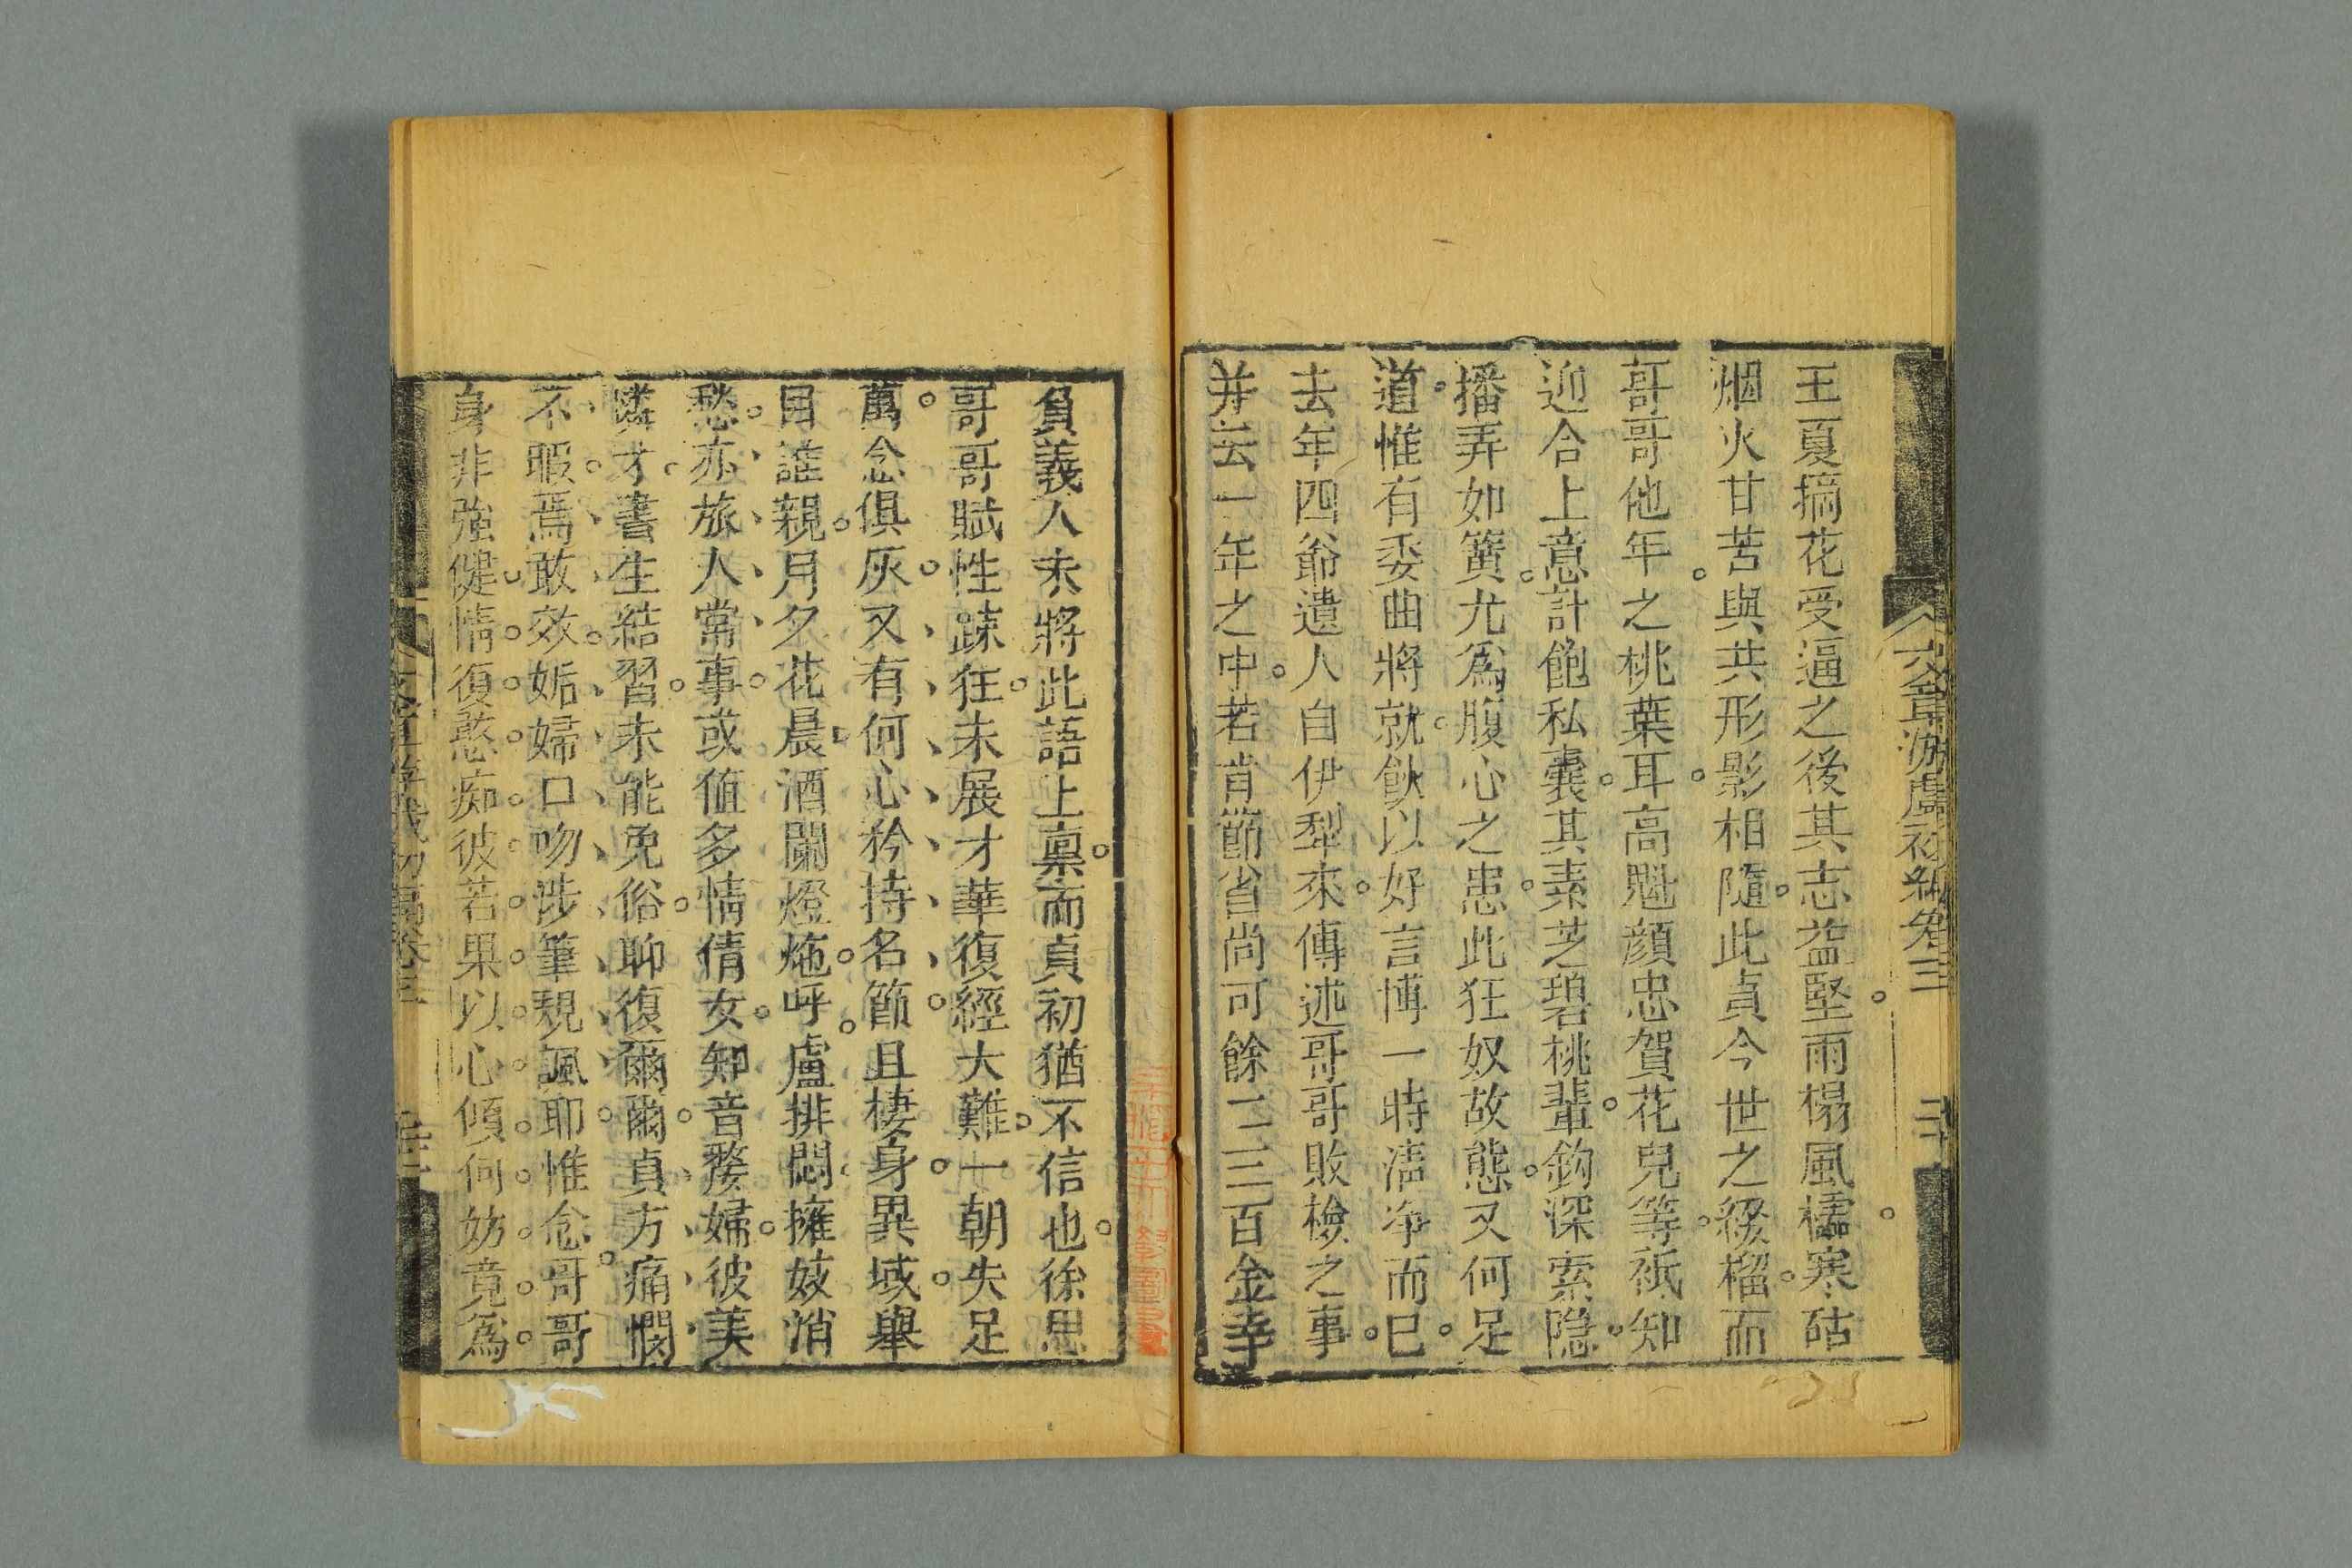 王夏摛花受逼之後其志益堅雨榻風櫺寒砧
烟火甘苦與共形影相隨此貞今世之綴榴而
哥哥他年之桃葉耳高魁顔忠賀花兒等祇知
迎合上意計飽私囊其素芝碧桃輩鈎深索隐
播弄如簧尤為腹心之患此狂奴故態又何足
道惟有委曲將就飲以好言博一時淸净而已
去年四爺遣人自伊犁來傳述哥哥敗檢之事
并云一年之中若肯節省尚可餘二三百金幸
負義人未將此語上稟而貞初猶不信也徐思
哥哥賦性踈狂未展才華復經大難一朝失足
萬念俱灰又有何心矜持名節且棲身異域舉
目誰親月夕花晨酒闌燈灺呼盧排悶擁妓消
愁亦旅人常事或値多情倩女知音嫠婦彼美
憐才書生結習未能免俗聊復爾爾貞方痛憫
不暇焉敢效姤婦口吻涉筆規諷耶惟念哥哥
身非強健情復憨痴彼若果以心傾何妨竟為